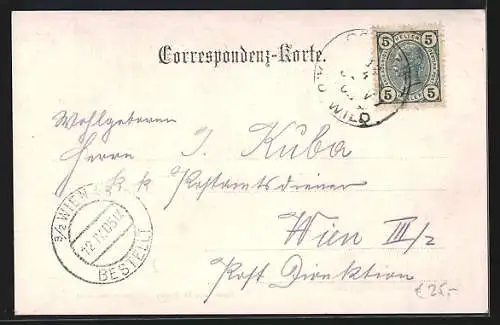 Correspondenz-Karte.
5 5
5 5
WILD
Wohlgeboren
Herrn J. Kuba
k k Postamtsdiener
Wien III/2
Post Direktion
3/2 WIEN
BESTELLT
€25,-